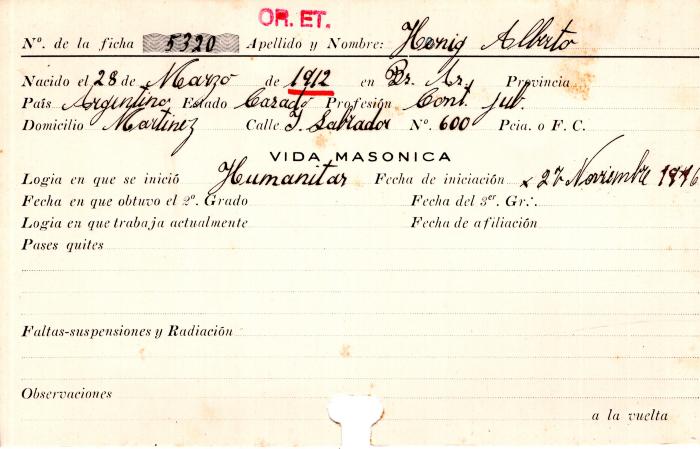 OR. ET.
Nº. de la ficha 5320 Apellido y Nombre: Honig Alberto
Nacido el 28 de Marzo de 1912 en Bs. As. Provincia
País Argentino Estado Casado Profesión Cont. Jub.
Domicilio Martinez Calle J. Labrador Nº. 600 Pcia. o F. C.
VIDA MASONICA
Logia en que se inició Humanitas Fecha de iniciación Noviembre
Fecha en que obtuvo el 2º. Grado Fecha del 3er. Gr∴
Logia en que trabaja actualmente Fecha de afiliación
Pases quites
Faltas-suspensiones y Radiación
Observaciones
a la vuelta